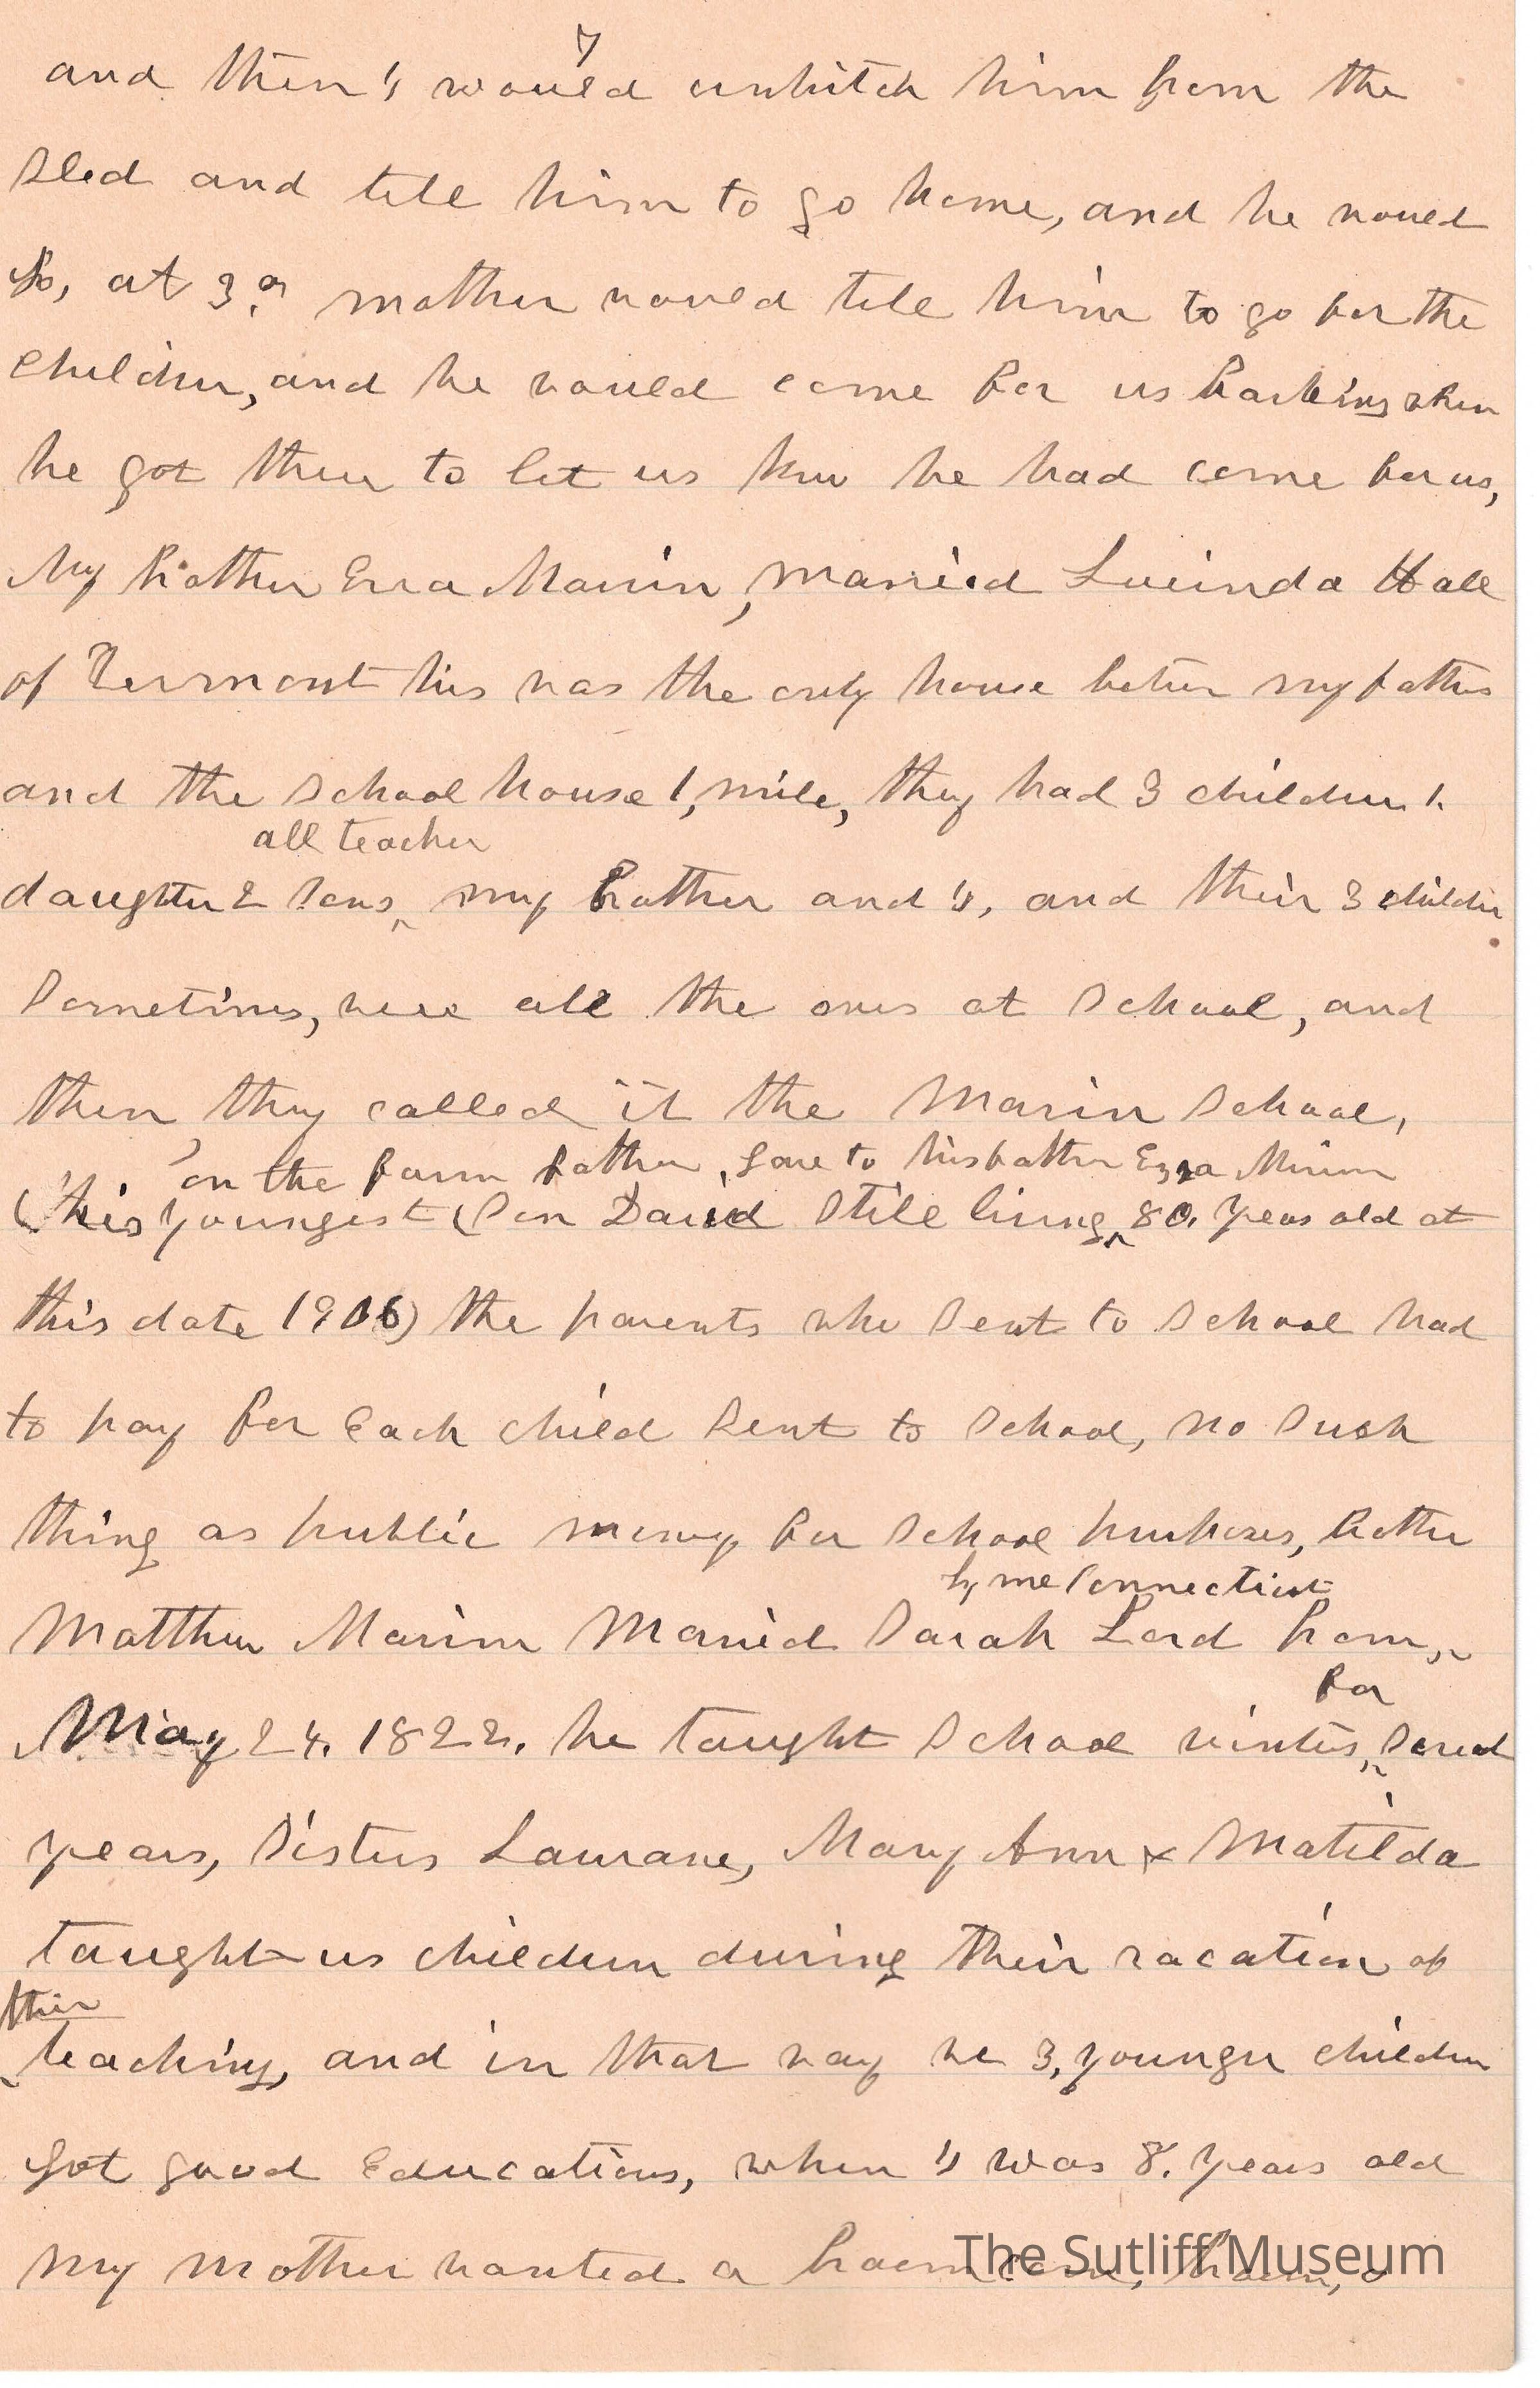 7
and then I would unhitch him from the
sled and tell him to go home, and he would
so, at 3. mother would tell him to go for the
children, and he would come for us barking when
he got there to let us know he had come for us,
My brother Ezra Marvin, married Lucinda Hall
of Vermont his was the only house between my fathers
and the school house 1, mile, they had 3 children 1.
all teacher
daughter 2 sons, my brother and I, and their 3 children
sometimes, were all the ones at school, and
then, they called it the Marvin school,
on the farm father, gave to his father Ezra Marvin
(his youngest son David still living, 80. years old at
this date 1906) the parents who sent to school had
to pay for each child sent to school, no such
thing as public money for school purposes, brother
Lyme Connecticut
Matthew Marvin married Sarah Lord from,
for
May 24. 1822. he taught school winters, several
years, sisters Laurane, Mary Ann & Matilda
taught us children during their vacation of
their
teaching, and in that way we 3, younger children
got good educations, when I was 8. years old
my mother wanted a
The Sutliff Museum